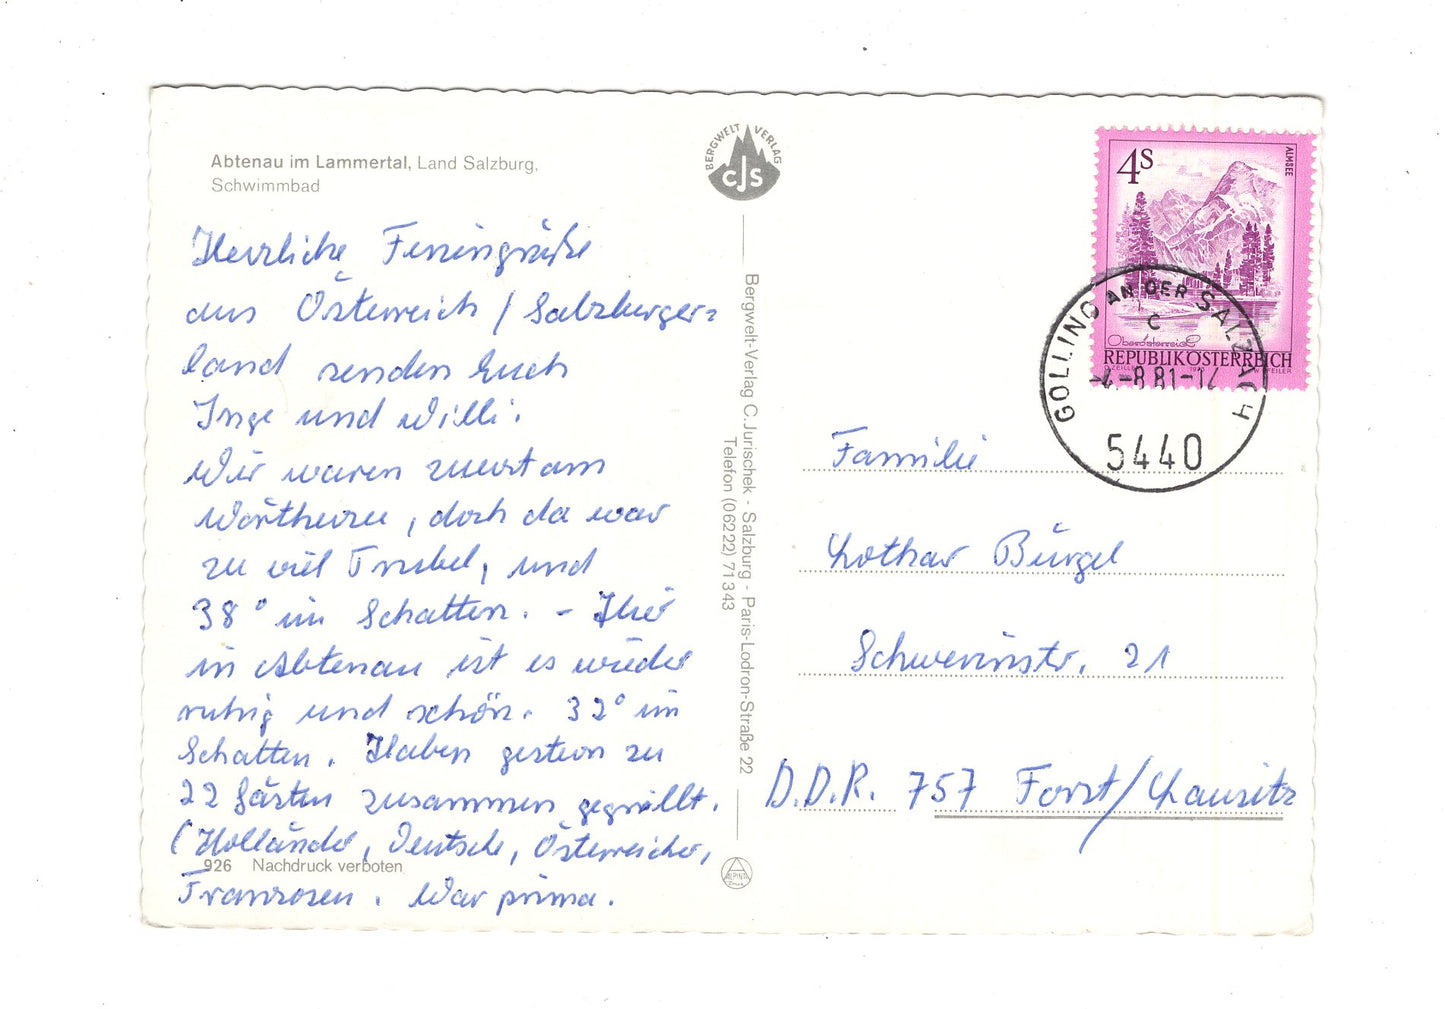 Abtenau im Lammertal, Land Salzburg,
Schwimmbad
Herzliche Feriengrüße
aus Österreich / Salzburger=
land senden Euch
Inge und Willi.
Wir waren zuerst am
Wörthersee, doch da war
zu viel Trubel, und
38° im Schatten. - Hier
in Abtenau ist es wieder
ruhig und schön. 32° im
Schatten. Haben gestern zu
22 Gästen zusammen gegrillt.
(Holländer, Deutsche, Österreicher,
Franzosen. War prima.
926 Nachdruck verboten
BERGWELT VERLAG
CJS
Bergwelt-Verlag C. Jurischek - Salzburg - Paris-Lodron-Straße 22
Telefon (06222) 71343
ALPINA
4S
ALMSEE
Oberösterreich
REPUBLIK ÖSTERREICH
GOLLING AN DER SALZACH
C
-4.-8.81-12
5440
Familie
Lothar Bürgel
Schwerinstr. 21
D.D.R. 757 Forst/Lausitz